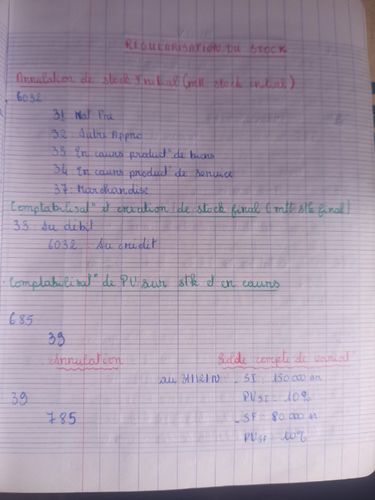 REGULARISATION DU STOCK
Annulation de stock Initial (mtt stock initial)
6032
31 Mat Pre
32 Autre Appro
33 En cours product° de biens
34 En cours product° de service
37 Marchandise
Comptabilisat° et creation de stock final (mtt stk final)
33 Au debit
6032 Au credit
Comptabilisat° de PV sur stk et en cours
685
39
Annulation
Solde compte de variat°
au 31/12/N - SI = 150 000
39
PVSI = 10%
785
- SF = 80 000
PVSF = 10%